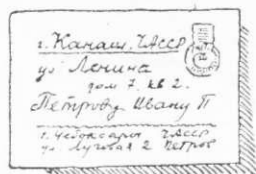 г. Канаш, ЧАССР
ул Ленина
дом 7. кв 2.
Петрову Ивану П
г. Чебоксары ЧАССР
ул. Луговая 2 Петров